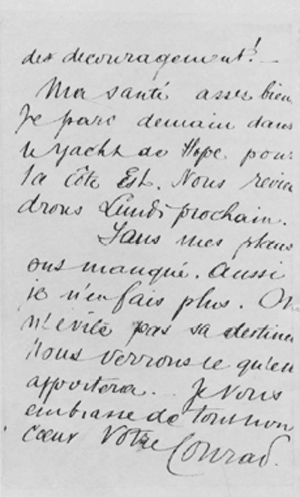 des decouragement! —
Ma santé assez bien
Je pars demain dans
le yacht de Hope pour
la côte Est. Nous revien
drons Lundi prochain.
mes plans
ont manqué. Aussi
je n'en fais plus. On
n'évite pas sa destinée
Nous verrons ce qu'en
apportera... Je vous
embrasse de tout mon
cœur Votre Conrad.